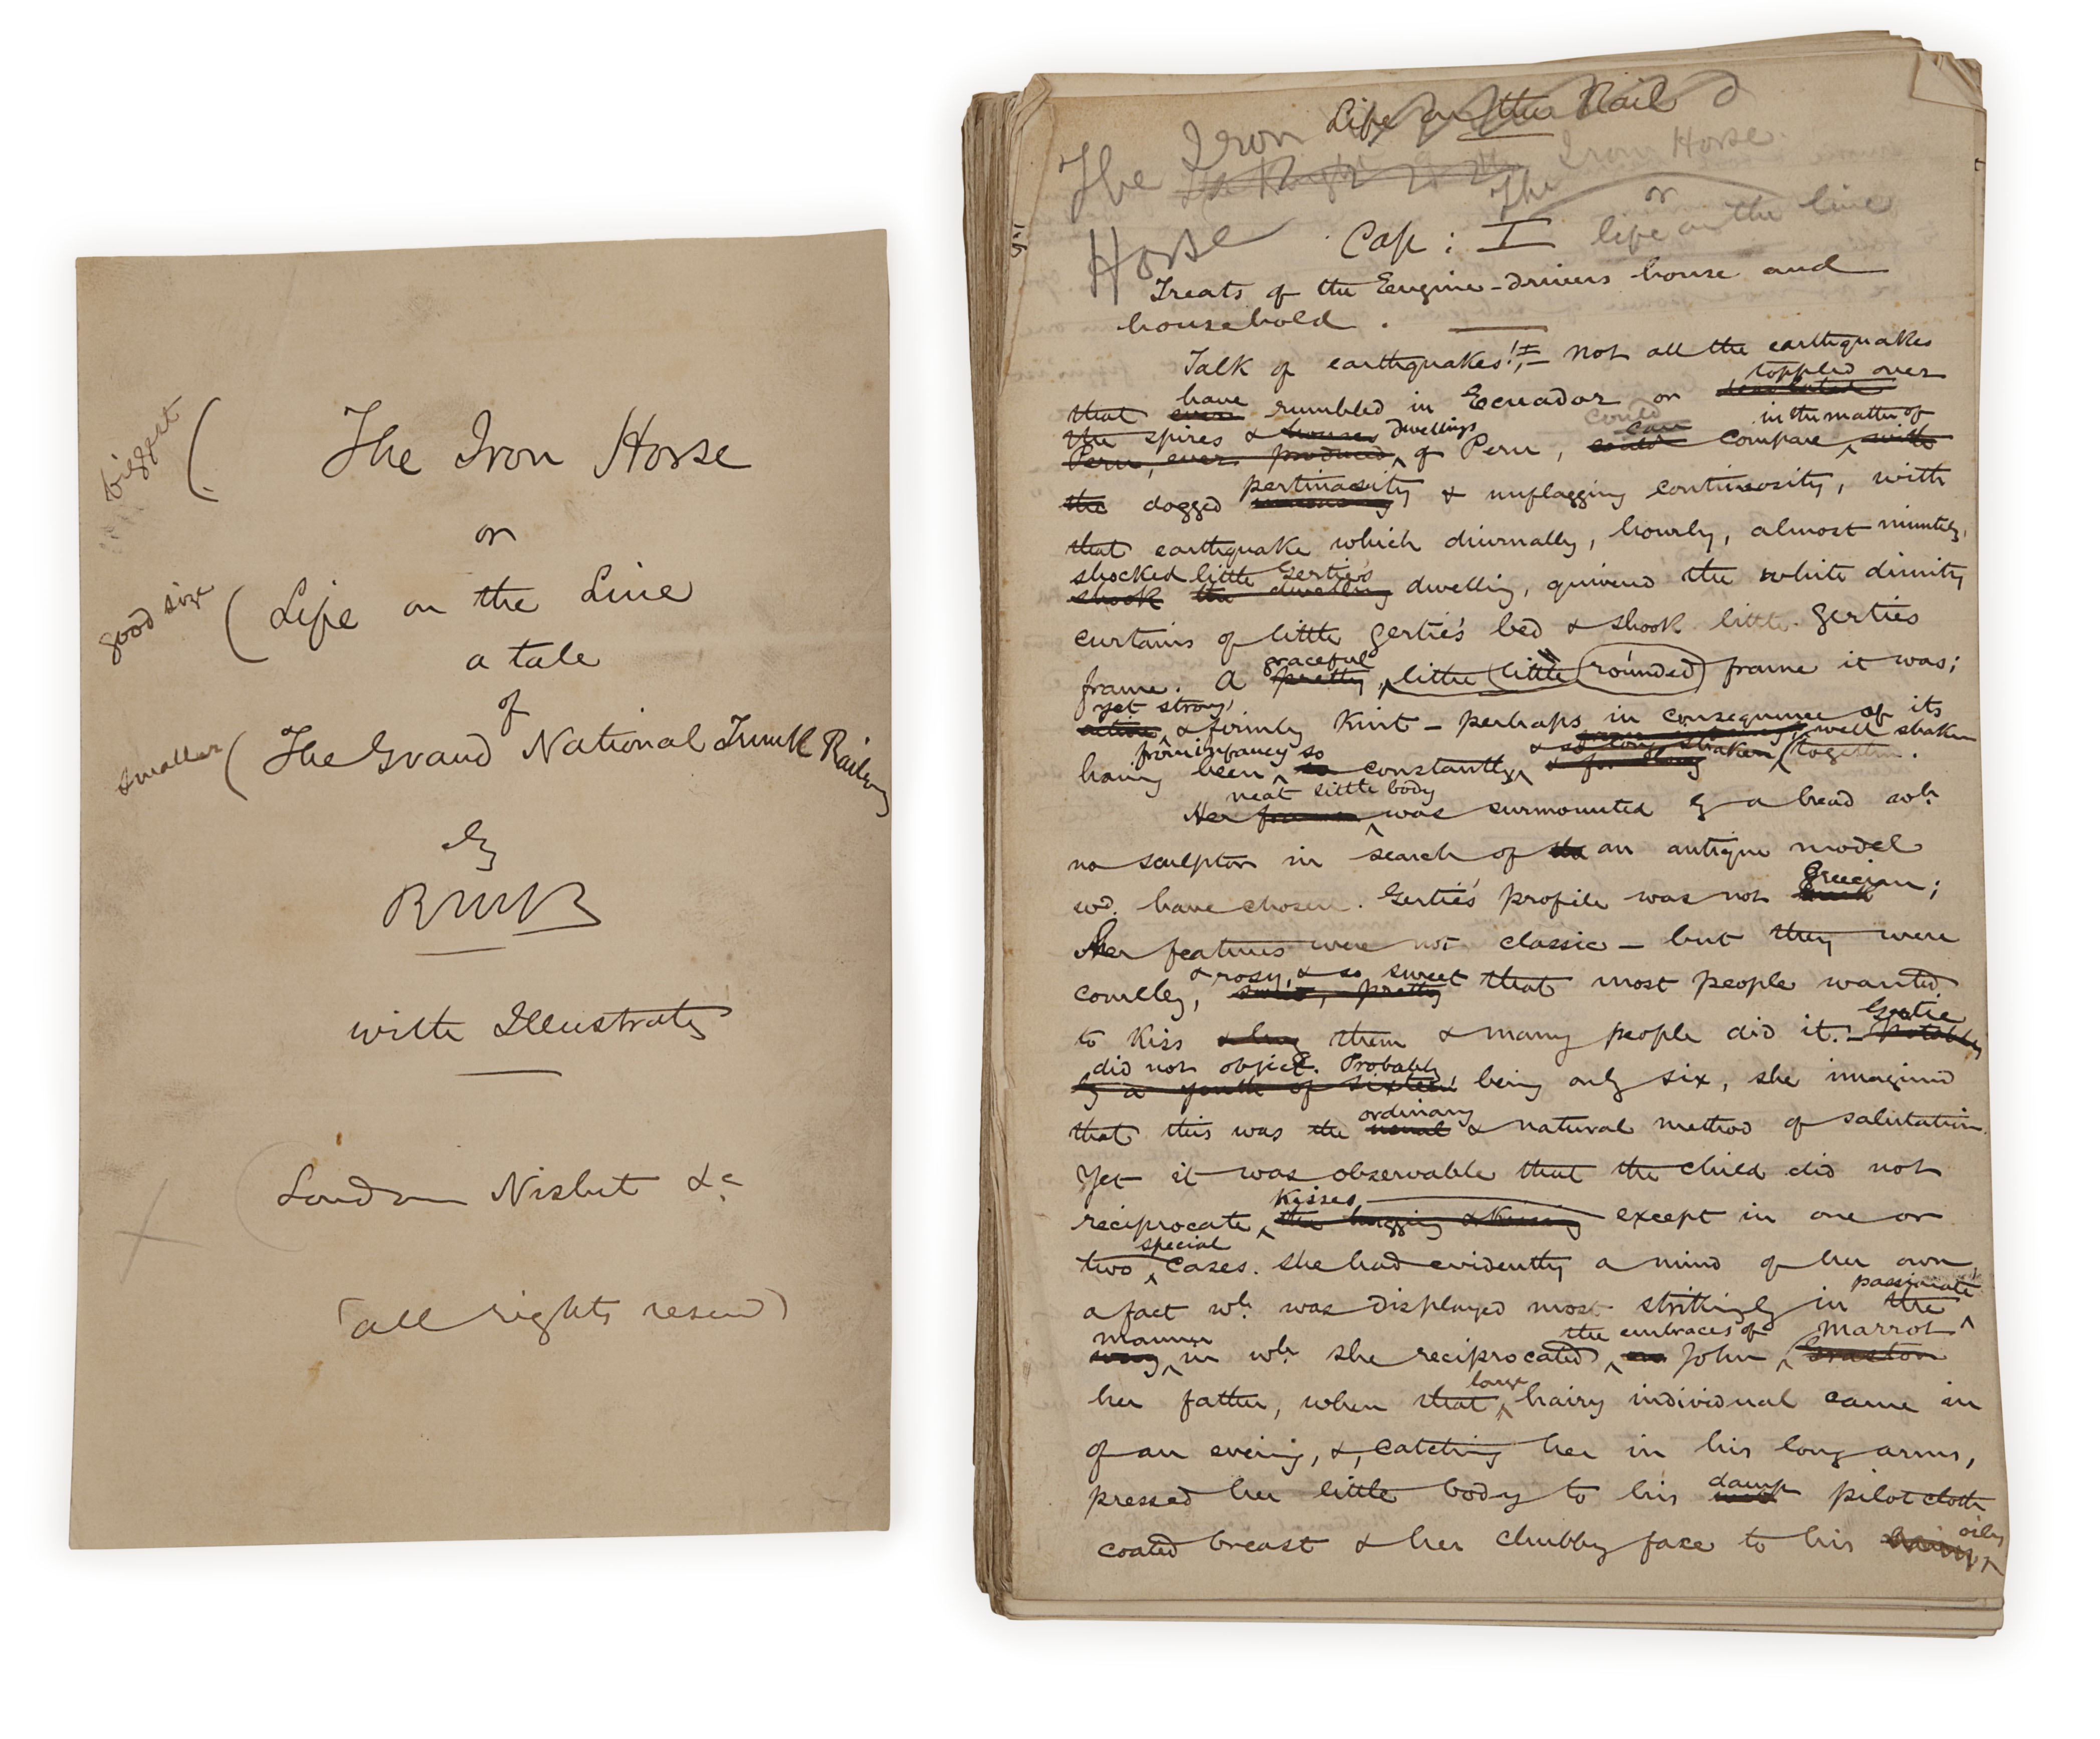 biggest
( The Iron Horse
or
good size
( Life on the Line
a tale
of
smaller ( The Grand National Trunk Railway
by
RMB
with Illustrats
London Nisbet &c
(all rights reservd)
Life on the Rail
The Iron
The Iron Horse
or
Horse
Cap: I life on the line
Treats of the Engine-drivers house and
household.
Talk of earthquakes! not all the earthquakes
toppled over
have
that ever rumbled in Ecuador or
could
can
in the matter of
the spires & houses dwellings
Peru, ever produced, of Peru, could compare with
pertinacity
the dogged & unflagging continuosity, with
that earthquake which diurnally, hourly, almost minutely,
shocked little Gertie's
shook the dwelling dwelling, quivered the white dimity
curtains of little Gertie's bed & shook little Gerties
graceful
frame. A pretty, little (little (rounded) frame it was;
yet strong,
active, & firmly knit – perhaps in consequence of its
well shaken
from infancy so
having been so constantly & for long shaken (together.
neat little body
Her was surmounted by a head wh.
no sculptor in search of an antique model
wd. have chosen. Gertie's profile was not Grecian;
Her features were not classic – but they were
& rosy, & so sweet
comely, pretty that most people wanted
Gertie
to kiss & hug them & many people did it. – Notably
did not object. Probably
by a youth of sixteen! being only six, she imagined
ordinary
that this was the usual & natural method of salutation.
Yet it was observable that the child did not
kisses
reciprocate the hugging & kissing except in one or
special
two cases. She had evidently a mind of her own,
passionate
a fact wh. was displayed most strikingly in the
manner
the embraces of
Marrot
way in wh. she reciprocated John
large
her father, when that hairy individual came in
of an evening, &, catching her in his long arms,
damp
pressed her little body to his pilotcloth
oily
coated breast & her chubby face to his hairy